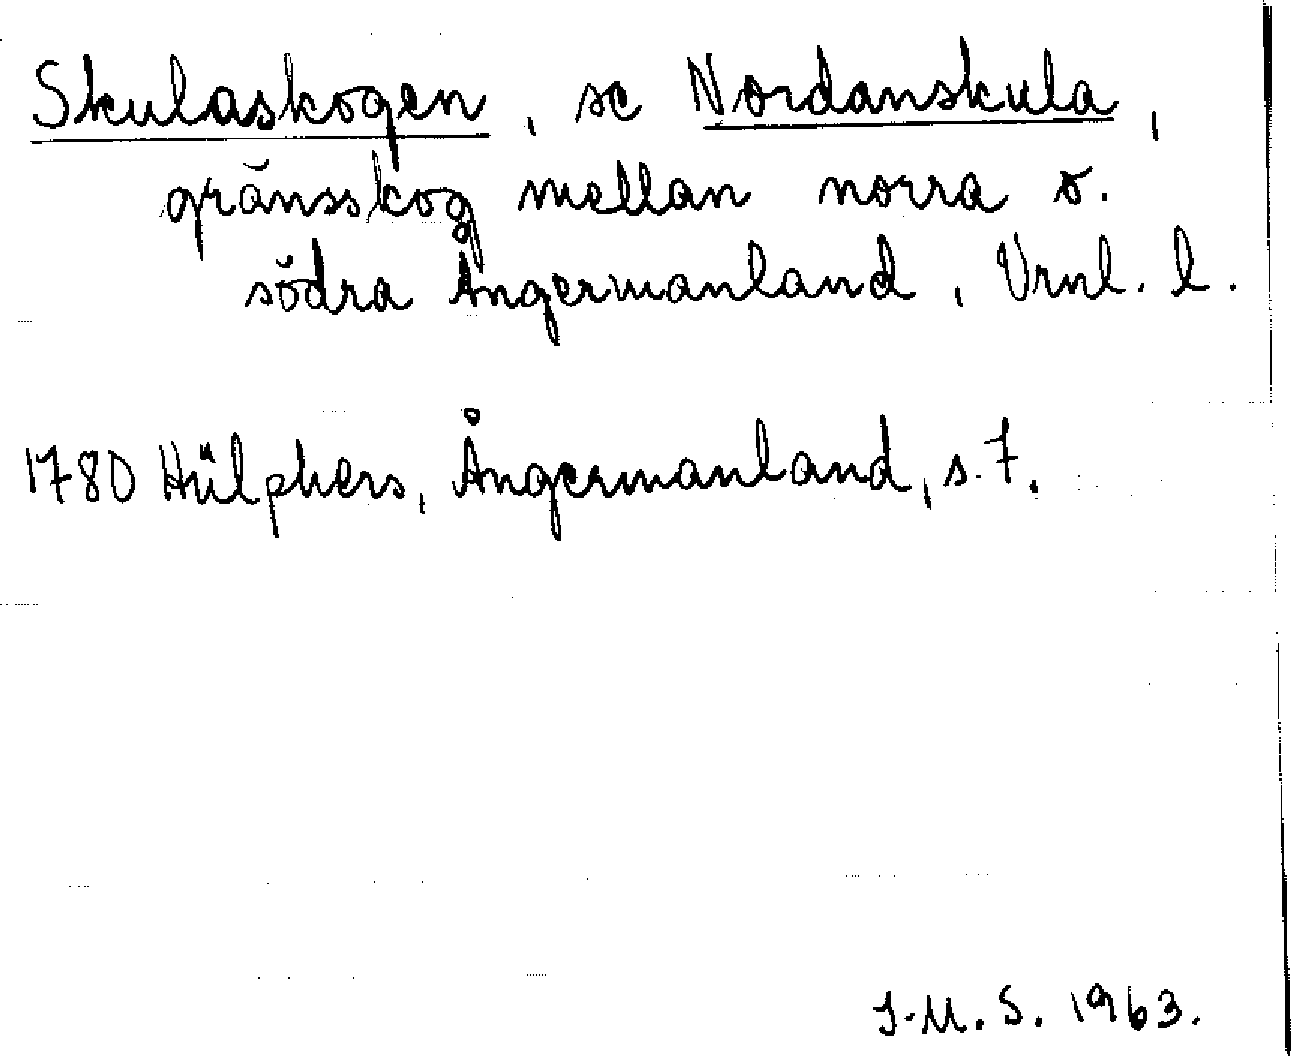 Skulaskogen, se Nordanskula,
gränsskog mellan norra o.
södra Ångermanland, Vrnl. l.
1780 Hülphers, Ångermanland, s. 7.
I-M. S. 1963.